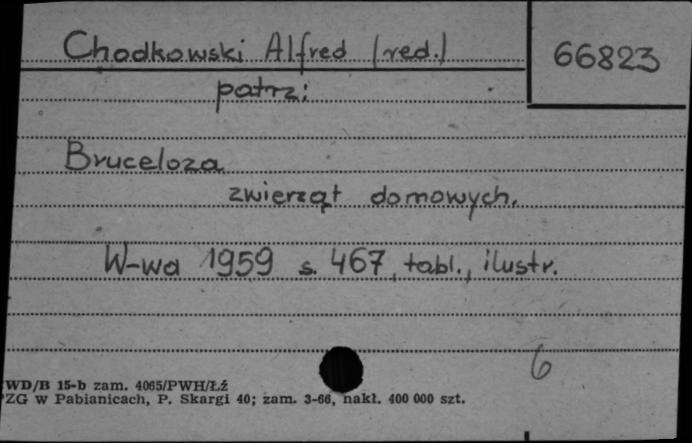 Chodkowski Alfred (red.)
66823
patrz:
Bruceloza
zwierząt domowych.
W-wa 1959 s. 467, tabl., ilustr.
6
WD/B 15-b zam. 4065/PWH/Łź
PZG w Pabianicach, P. Skargi 40; zam. 3-66, nakł. 400 000 szt.